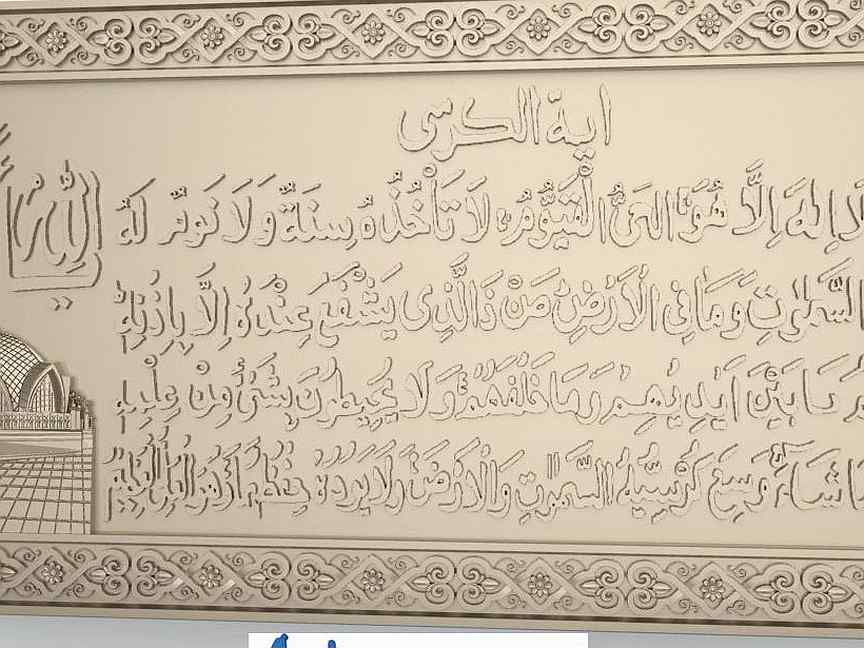 اية الكرسى
لَا اِلٰهَ اِلَّا هُوَ الْحَىُّ الْقَيُّوْمُ لَا تَأْخُذُهُ سِنَةٌ وَلَا نَوْمٌ لَهُ
السَّمٰوٰتِ وَمَا فِى الْاَرْضِ مَنْ ذَا الَّذِى يَشْفَعُ عِنْدَهُ اِلَّا بِاِذْنِهِ
مَا بَيْنَ اَيْدِيهِمْ وَمَا خَلْفَهُمْ وَلَا يُحِيطُونَ بِشَىْءٍ مِنْ عِلْمِهِ
شَاءَ وَسِعَ كُرْسِيُّهُ السَّمٰوٰتِ وَالْاَرْضَ وَلَا يَؤُدُهُ حِفْظُهُمَا وَهُوَ الْعَلِىُّ الْعَظِيمُ